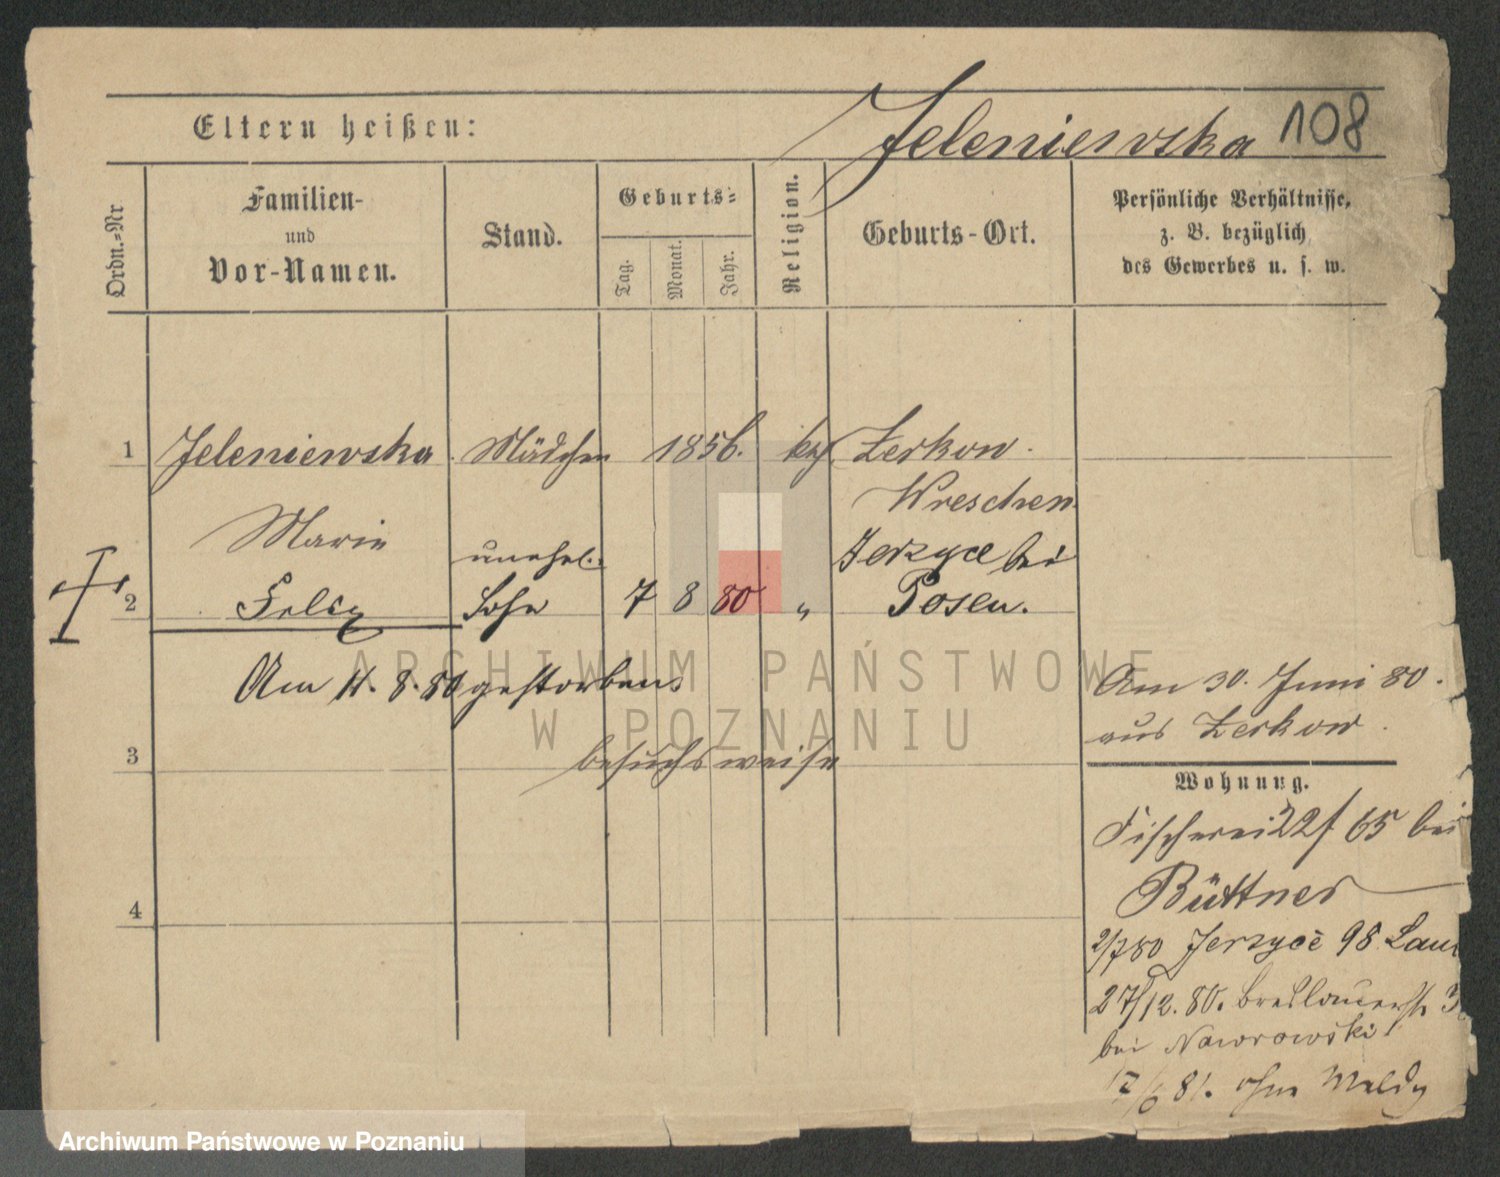 Eltern heißen: Jeleniewska 108
Ordn.-Nr
Familien-
und
Vor-Namen.
Stand.
Geburts-
Tag. Monat. Jahr.
Religion.
Geburts-Ort.
Persönliche Verhältnisse,
z. B. bezüglich
des Gewerbes u. s. w.
1 Jeleniewska Mädchen 1856. kth Zerkow.
Wreschen
Marie
unehel. Jerzyce bei
2 Felix Sohn 7 8 80 " Posen.
Am 11. 8. 80 gestorben
Am 30. Juni 80.
aus Zerkow.
3 besuchsweise
Wohnung.
Fischerei 22/65 bei
Büttner
4
2/7 80 Jerzyce 98. Lau
27/12. 80. Breslauerstr 3
bei Nawrowski
/6 81. ohne Meldg
ARCHIWUM PAŃSTWOWE
W POZNANIU
Archiwum Państwowe w Poznaniu